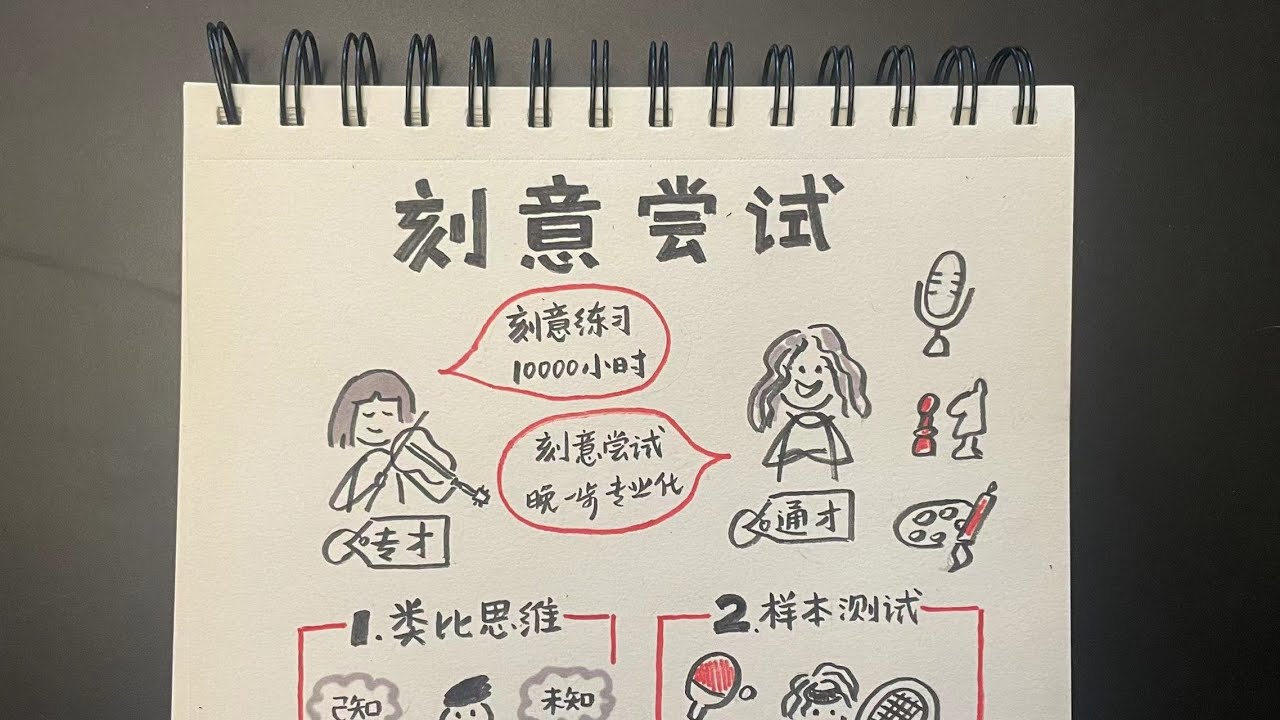 刻意尝试
刻意练习
10000小时
刻意尝试
晚一步专业化
专才
通才
1.类比思维
2.样本测试
已知
未知